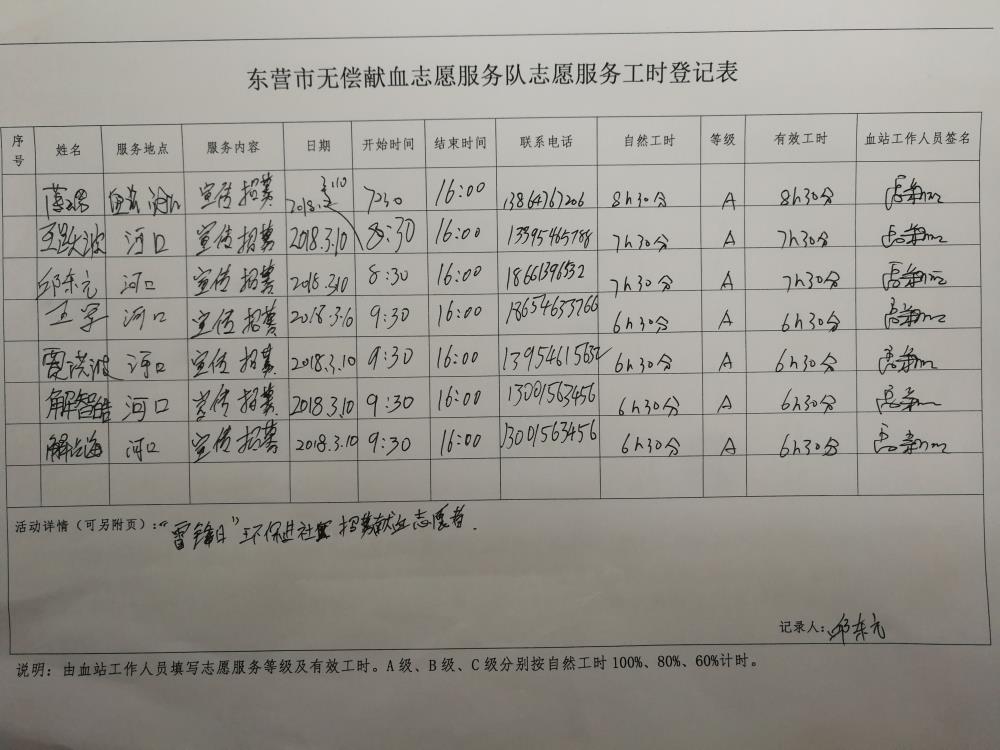 东营市无偿献血志愿服务队志愿服务工时登记表
序号 姓名 服务地点 服务内容 日期 开始时间 结束时间 联系电话 自然工时 等级 有效工时 血站工作人员签名
宣传招募 2018.3.10 7:30 16:00 13864767206 8h30分 A 8h30分
王跃波 河口 宣传招募 2018.3.10 8:30 16:00 13395465788 7h30分 A 7h30分
邱东元 河口 宣传招募 2018.3.10 8:30 16:00 18661396532 7h30分 A 7h30分
王军 河口 宣传招募 2018.3.10 9:30 16:00 18654633766 6h30分 A 6h30分
贾洪波 河口 宣传招募 2018.3.10 9:30 16:00 13954615632 6h30分 A 6h30分
解智皓 河口 宣传招募 2018.3.10 9:30 16:00 13001563456 6h30分 A 6h30分
河口 宣传招募 2018.3.10 9:30 16:00 13001563456 6h30分 A 6h30分
活动详情（可另附页）：“雷锋日”环保进社区招募献血志愿者.
记录人：邱东元
说明：由血站工作人员填写志愿服务等级及有效工时。A 级、B 级、C 级分别按自然工时 100%、80%、60%计时。